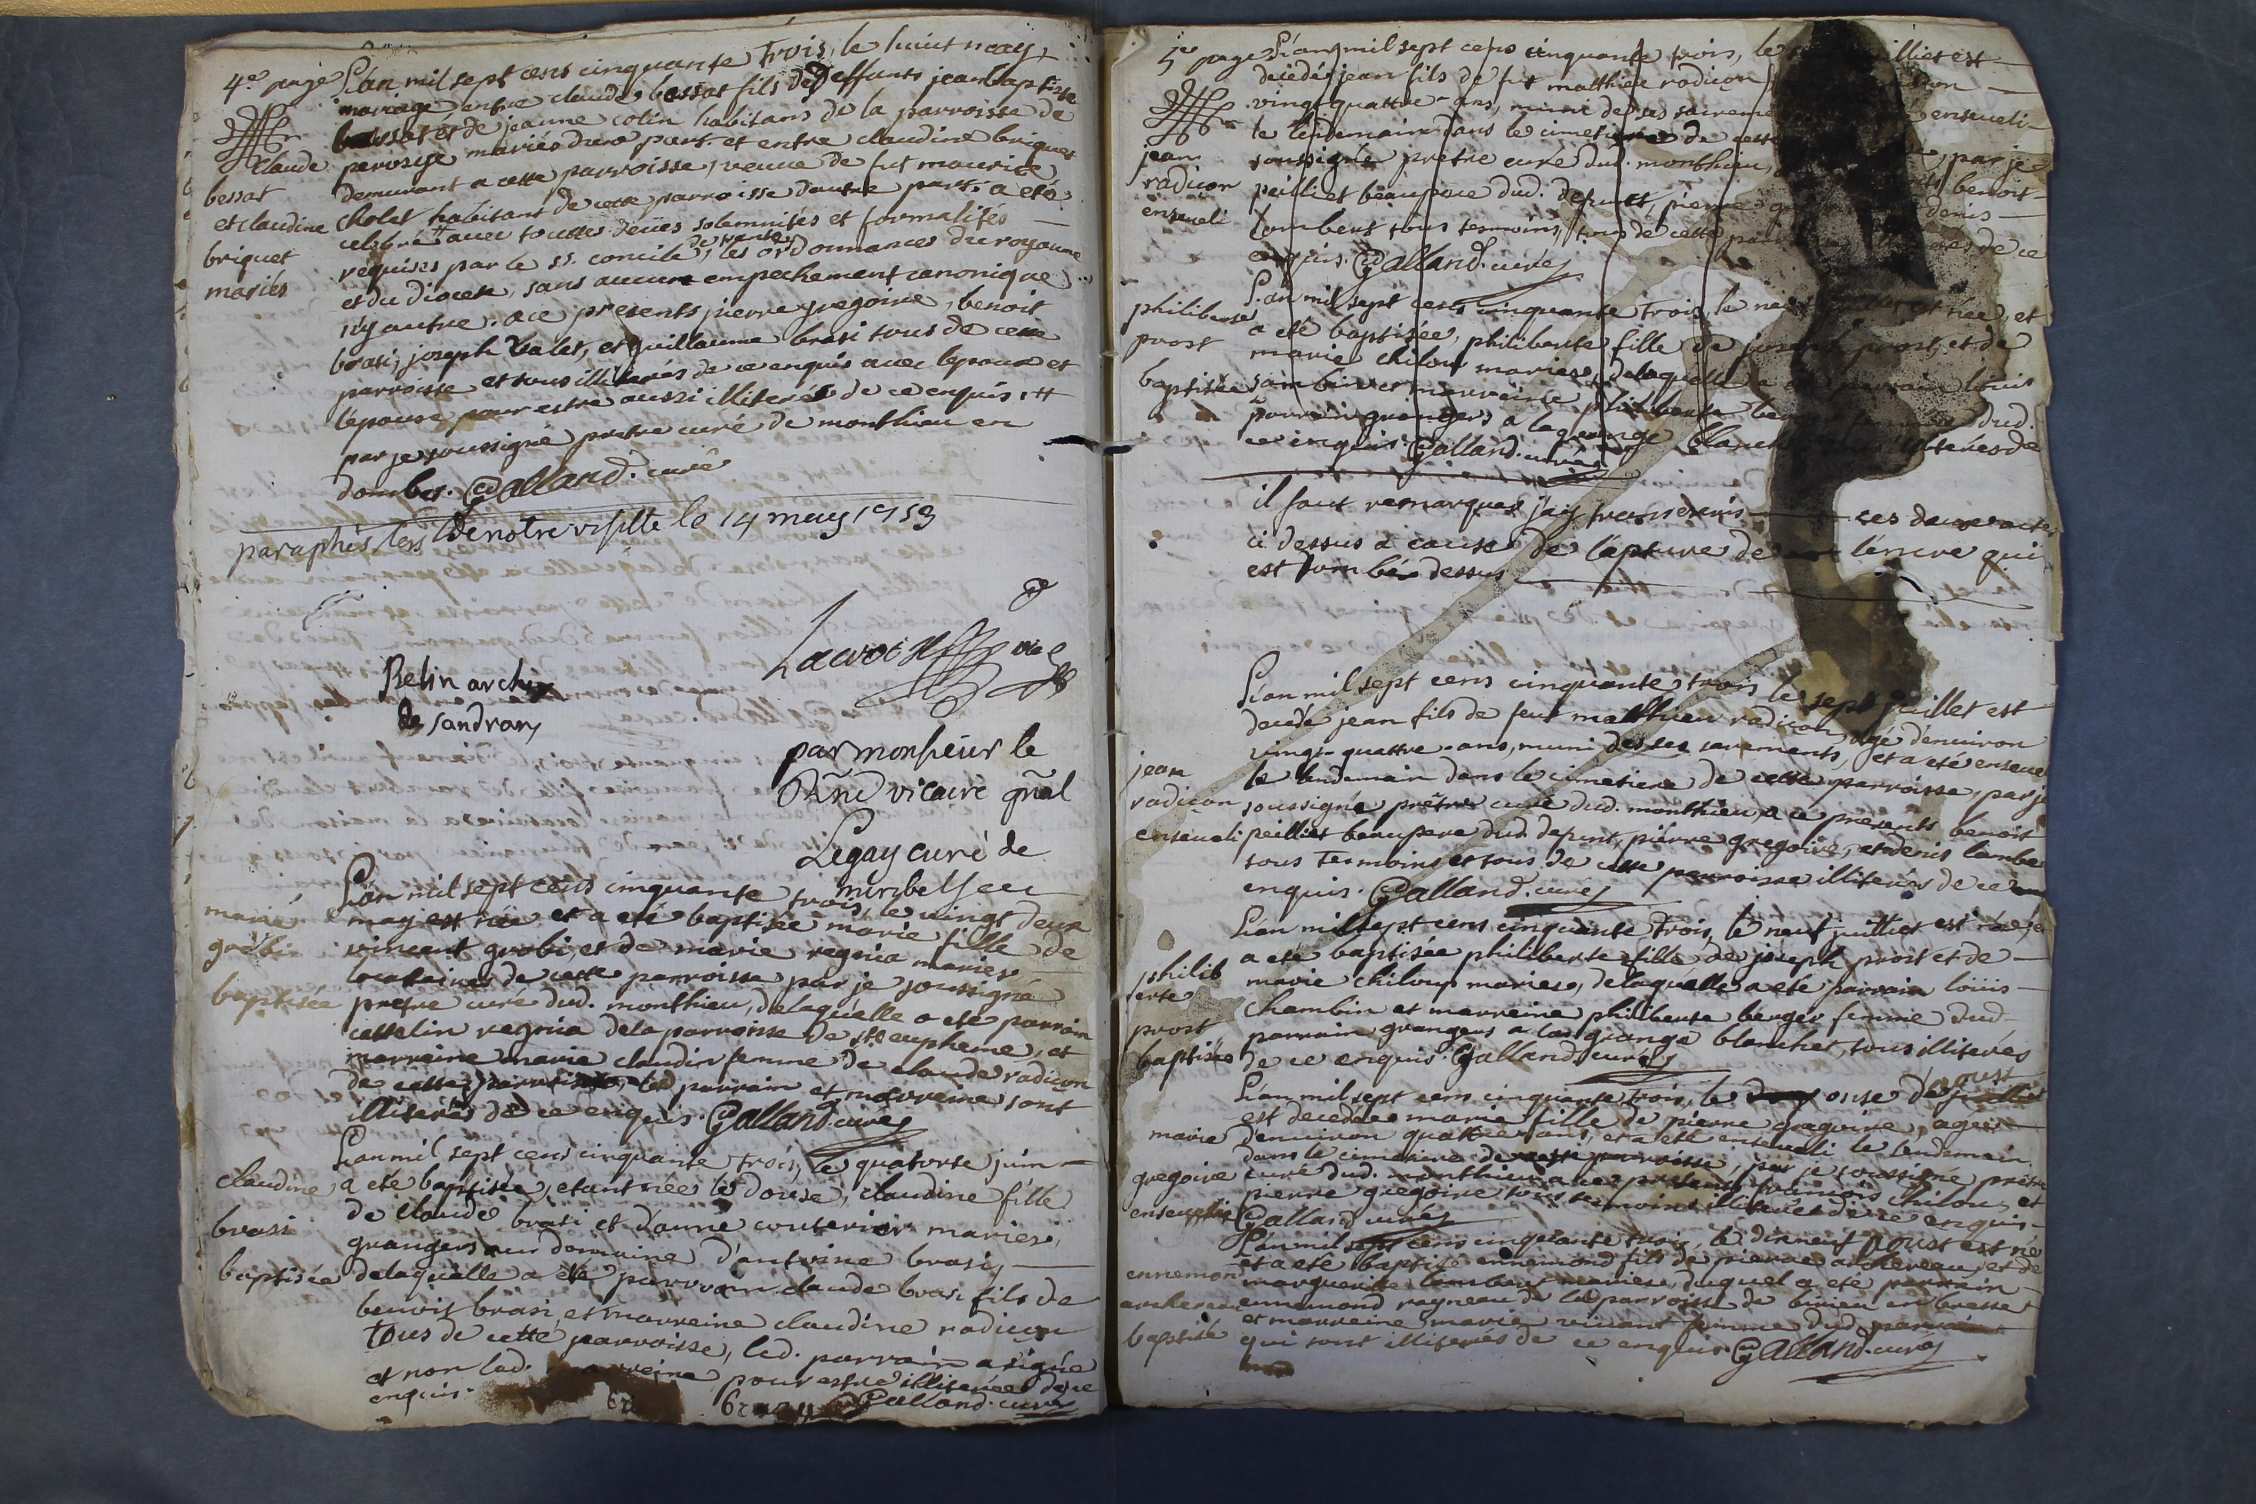 4.e page L'an mil sept cens cinquante trois, le huict may,
mariage entre claude bessat fils des deffunts jean baptiste
bessat et de jeanne colin habitans de la parroisse de
perouge mariés d'une part. et entre claudine briquet
demeurant a cette parroisse, veuve de fut maurice
cholet habitant de cette parroisse d'autre part. a eté
celebré avec touttes deües solemnités et formalités
requises par le st. concile de trante, les ordonnances du royaume
et du diocese, sans aucun empechement canonique
n'y autre. a ce presents pierre gregoire, benoit
brasi, joseph valet, et guillaume brasi tous de cette
parroisse et tous illiterés de ce enquis avec l'epoux et
l'epouse pour estre aussi illiterés de ce enquis.
par je soussigné prêtre curé de monthieu en
dombes. Galland. curé
claude
bessat
et claudine
briquet
mariés
paraphés lors de notre visitte le 14 may 1753
Belin archip.
de sandrans
par monsieur le
Grand vicaire gñal
Legay curé de
miribel
L'an mil sept cens cinquante trois, le vingt deux
may est née et a eté baptisée marie fille de
vincent grobi, et de marie regnia mariés,
locataires de cette parroisse par je soussigné
pretre curé dud. monthieu, delaquelle a eté parrain
cattelin regnia de la parroisse de ste eupheme, et
marreine marie claudin femme de claude radicon
de cette parroisse, led parrain et marreine sont
illiterés de ce enquis. Galland. curé
marie
grobi
baptisée
L'an mil sept cens cinquante trois, le quatorse juin
a eté baptisée, etant née le douse, claudine fille
de claude brasi et d'anne couturier mariés,
grangers au domaine d'antoine brasi,
delaquelle a eté parrain claude brasi fils de
benoit brasi, et marreine claudine radicon
tous de cette parroisse, led. parrain a signé
et non lad. marreine pour estre illiterée de ce
enquis. brazy Galland. curé
claudine
brasi
baptisée
5.e page L'an mil sept cens cinquante trois, le juilliet est
decédé jean fils de fut matthieu radicon
vingt quattre ans, muni de ses sacremen enseveli
le lendemain dans le cimetiere de cett par je
soussigné prêtre curé dud. monthieu, benoit
peilliet beaupere dud. defunt, pierre denis
lombert tous temoins, tous de cette par de ce
enquis. Galland. curé
jean
radicon
enseveli
L'an mil sept cens cinquante trois, le née, et
a eté baptisée, philiberte fille de joseph prost, et de
marie chilou mariés, delaquelle a eté parrain loüis
sambin et marreine philiberte dud.
parrain grangers a la grange blanch illiterés de
ce enquis. Galland. curé
philiberte
prost
baptisée
il faut remarquer j'ay transcris ces deux actes
ci dessus a cause de l'apture de l'encre qui
est tombé dessus
L'an mil sept cens cinquante trois le sept juillet est
decédé jean fils de feut matthieu radicon agé d'environ
vingt-quattre-ans, muni des ses sacrements, et a eté enseve
le lendemain dans le cimetiere de cette parroisse, par je
soussigné prêtre curé dud. monthieu, a ce presents benoit
peilliet beaupere dud. defunt, pierre gregoire, et denis lambe
tous temoins et tous de cette parroisse illiterés de ce
enquis. Galland. curé
jean
radicon
enseveli
L'an mil sept cens cinquante trois, le neuf juilliet est née, et
a eté baptisée philiberte fille de joseph prost et de
marie chiloup mariés, delaquelle a eté parrain loüis
chambin et marreine philiberte berger femme dud.
parrain grangers a la grange blanchet, tous illiterés
de ce enquis. Galland. curé
philib
erte
prost
baptisée
L'an mil sept cens cinquante trois, le onse d'aoust
est decedée marie fille de pierre gregoire, agée
d'environ quattre ans, et a eté enseveli le lendemain
dans le cimetiere de cette parroisse, par je soussigné prêtre
curé dud. monthieu a ce presents françois chilou, et
pierre gregoire tous temoins illiterés de ce enquis
Galland curé
marie
gregoire
ensevelie
L'an mil sept cens cinquante trois, le dixneuf aoust est né
et a eté baptisé ennemond fils de pierre archereau, et de
marguerite lambert mariés, duquel a eté parrain
ennemond ragneau de la parroisse de birieu en bresse
et marreine marie vincent femme dud. parrain
qui sont illiterés de ce enquis Galland. curé
ennemond
archereau
baptisé